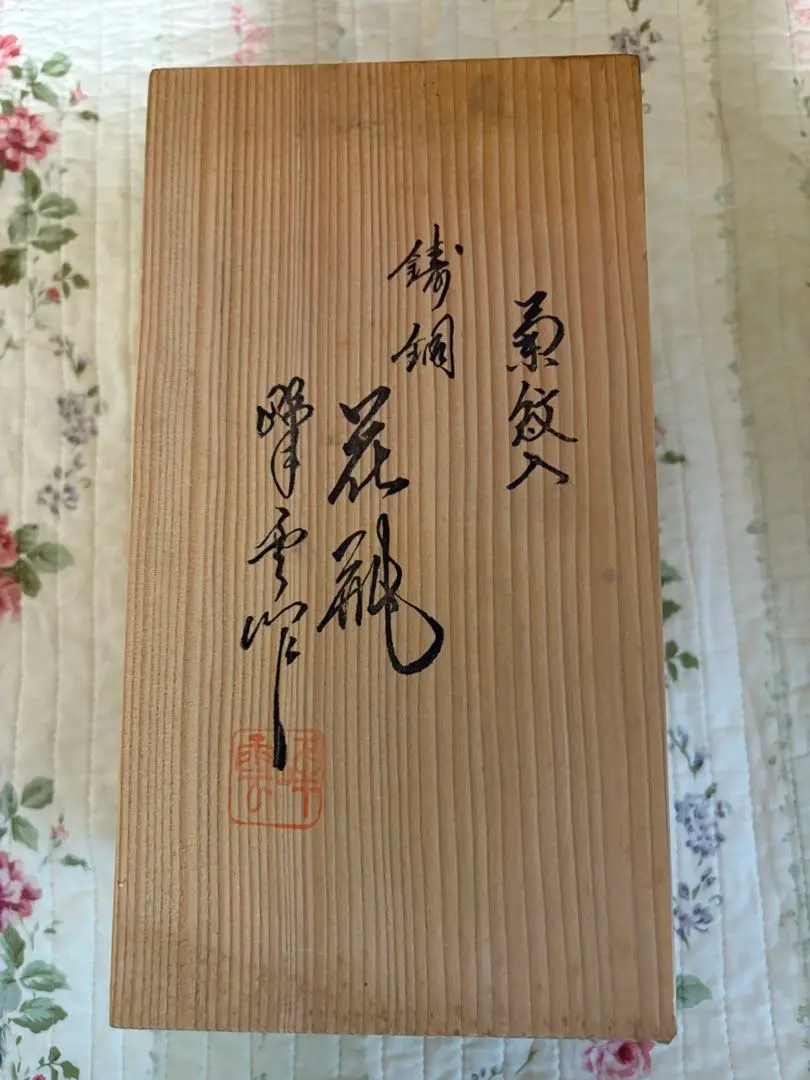 菊紋入
鋳銅
花瓶
雲作